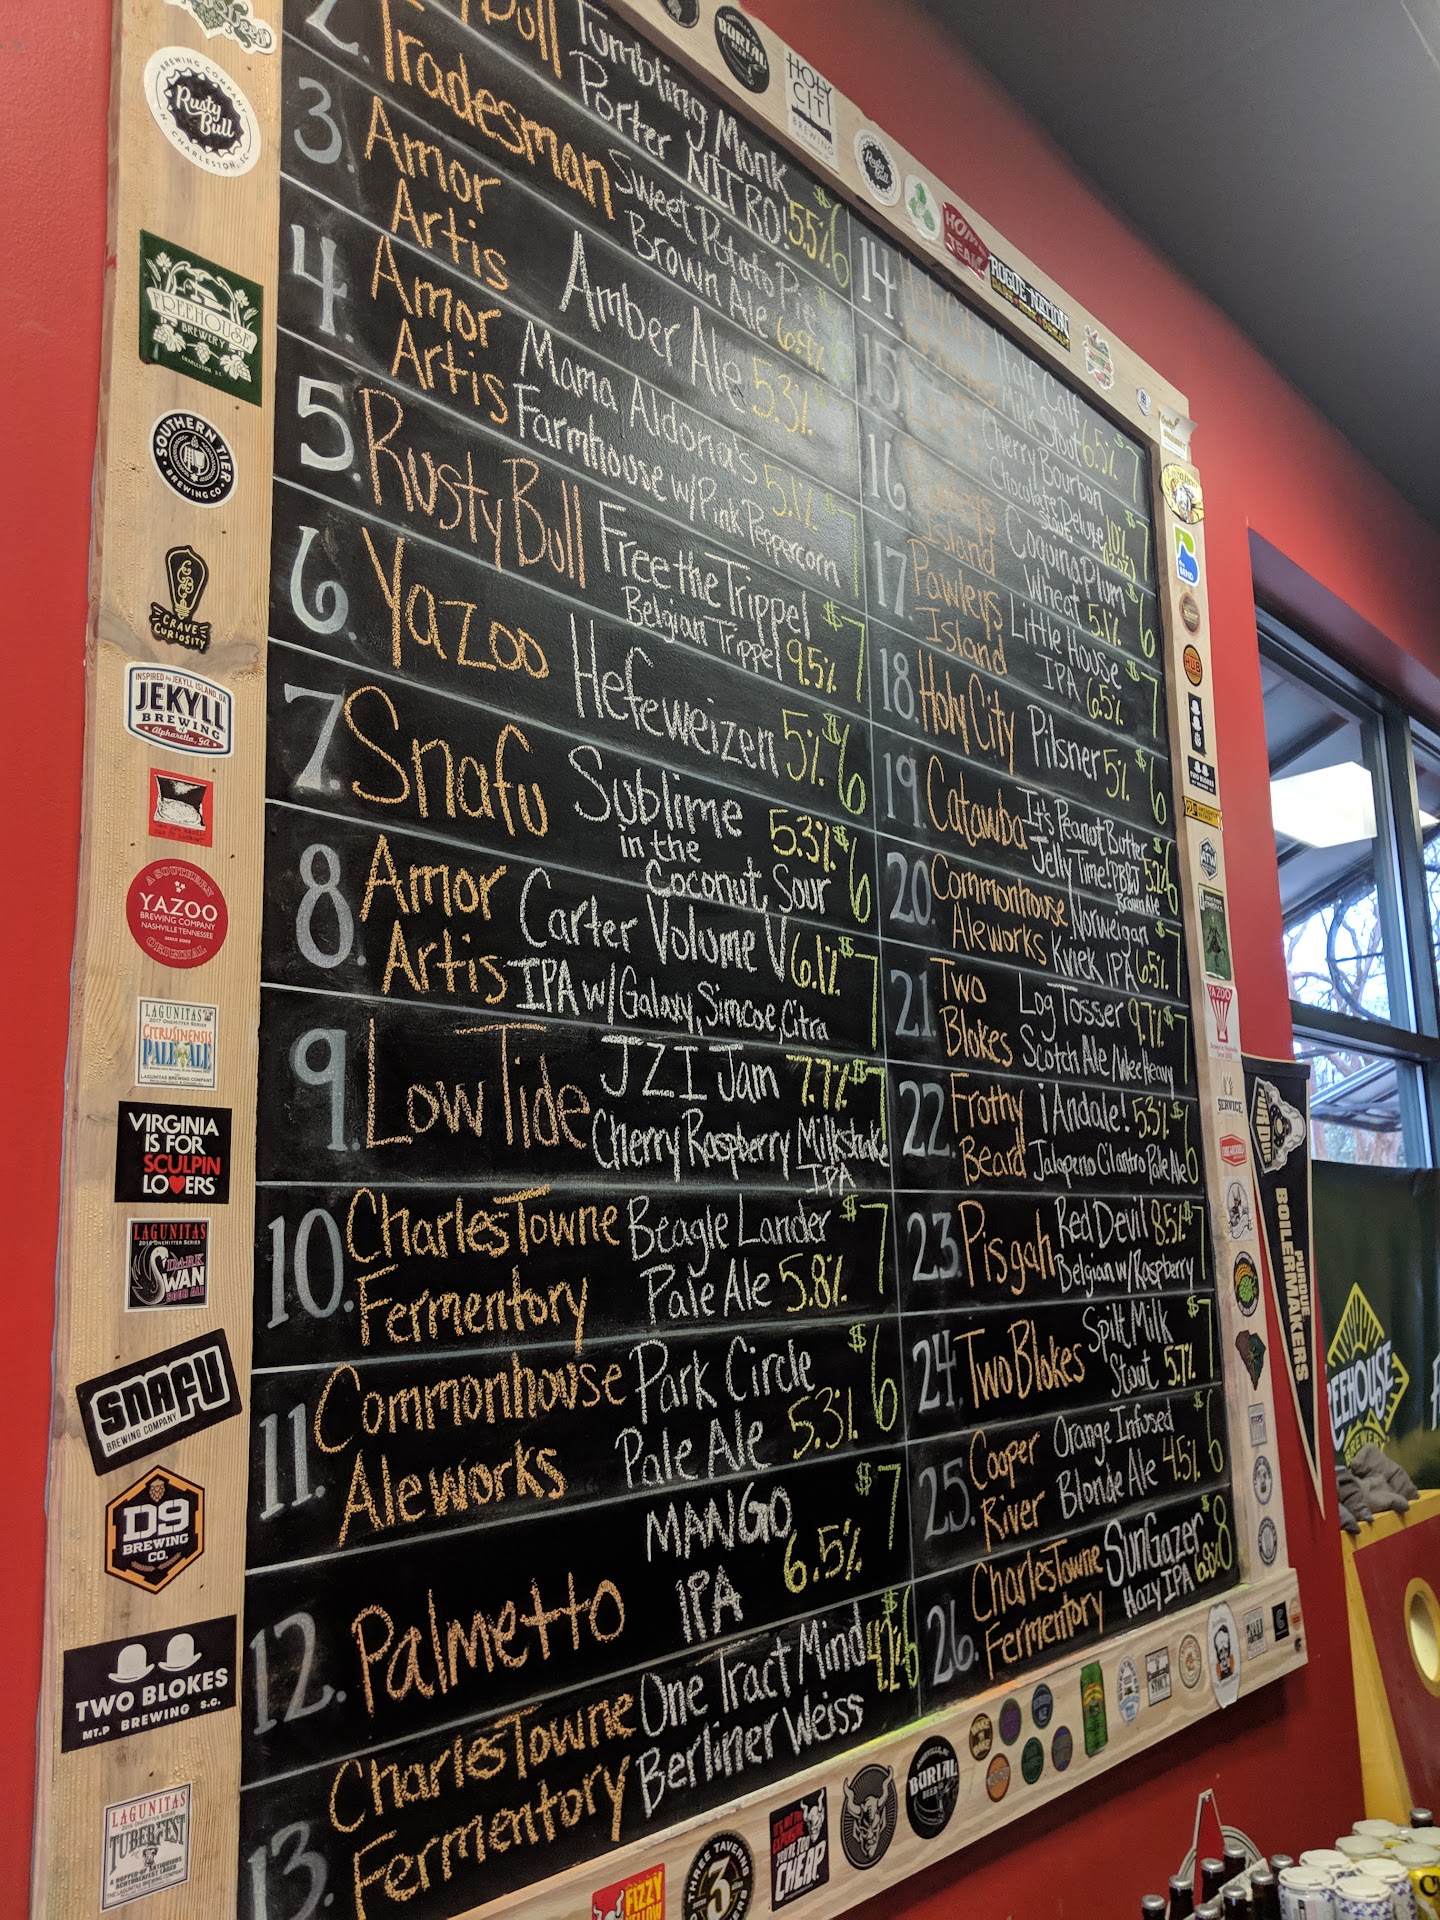 2.
Tumbling Monk
Porter NITRO!
5.5%
$6
Tradesman
Sweet Potato Pie
Brown Ale 6.9%
3.
Amor
Artis
Amber Ale 5.3%
4.
Amor
Artis
Mama Aldona's
Farmhouse w/Pink Peppercorn
5.1%
$7
5.
Rusty Bull
Free the Trippel
Belgian Trippel 9.5%
$7
6.
Yazoo
Hefeweizen 5%
$6
7.
Snafu
Sublime
in the
Coconut Sour
5.3%
$6
8.
Amor
Artis
Carter Volume V 6.1%
IPA w/Galaxy, Simcoe, Citra
$7
9.
Low Tide
JZI Jam 7.7%
Cherry Raspberry Milkshake
IPA
$7
10.
CharlesTowne
Fermentory
Beagle Lander
Pale Ale 5.8%
$7
11.
Commonhouse
Aleworks
Park Circle
Pale Ale 5.3%
$6
12.
Palmetto
MANGO
IPA
6.5%
$7
13.
CharlesTowne
Fermentory
One Tract Mind
Berliner Weiss
4.2%
$6
14
Half Calf
Milk Stout 6.5%
$7
15
Cherry Bourbon
Chocolate Deluxe
Stout
10%
(12oz)
$7
16
Island
Coquina Plum
Wheat 5.1%
$6
17
Pawleys
Island
Little House
IPA 6.5%
$7
18.
Holy City
Pilsner 5%
$6
19.
Catawba
It's Peanut Butter
Jelly Time! PB&J
Brown Ale
5.2%
$6
20.
Commonhouse
Aleworks
Norweigan
Kviek IPA 6.5%
$7
21.
Two
Blokes
Log Tosser 9.7%
Scotch Ale/Wee Heavy
$7
22.
Frothy
Beard
¡Andale! 5.3%
Jalapeno Cilantro Pale Ale
$6
23.
Pisgah
Red Devil 8.5%
Belgian w/Raspberry
$7
24.
Two Blokes
Spilt Milk
Stout 5.7%
$7
25.
Cooper
River
Orange Infused
Blonde Ale 4.5%
$6
26.
CharlesTowne
Fermentory
SunGazer
Hazy IPA 6.8%
$8
BREWING COMPANY
Rusty
Bull
N. CHARLESTON, SC
FREEHOUSE
BREWERY
CHARLESTON, S.C.
SOUTHERN TIER
BREWING CO.
CRAVE
CURIOSITY
INSPIRED by JEKYLL ISLAND, GA
JEKYLL
BREWING
Alpharetta, GA
A SOUTHERN
YAZOO
BREWING COMPANY
NASHVILLE TENNESSEE
SINCE 2003
ORIGINAL
LAGUNITAS
2017 ONEHITTER SERIES
CITRUSINENSIS
PALE ALE
LAGUNITAS BREWING CO
VIRGINIA
IS FOR
SCULPIN
LOVERS
LAGUNITAS
ONEHITTER SERIES
DARK
SWAN
SOUR ALE
SNAFU
BREWING COMPANY
D9
BREWING
CO.
TWO BLOKES
MT.P BREWING S.C.
LAGUNITAS
TUBERFEST
BURIAL
HOLY
CITY
BREWING
Rusty
Bull
HOME
TEAM
ROGUE NATION
HUB
TWO BLOKES
YAZOO
SERVICE
PURDUE
PURDUE
BOILERMAKERS
FREEHOUSE
BREWERY
FIZZY
YELLOW
THREE TAVERNS
3
CHEAP
BURIAL
BEER CO